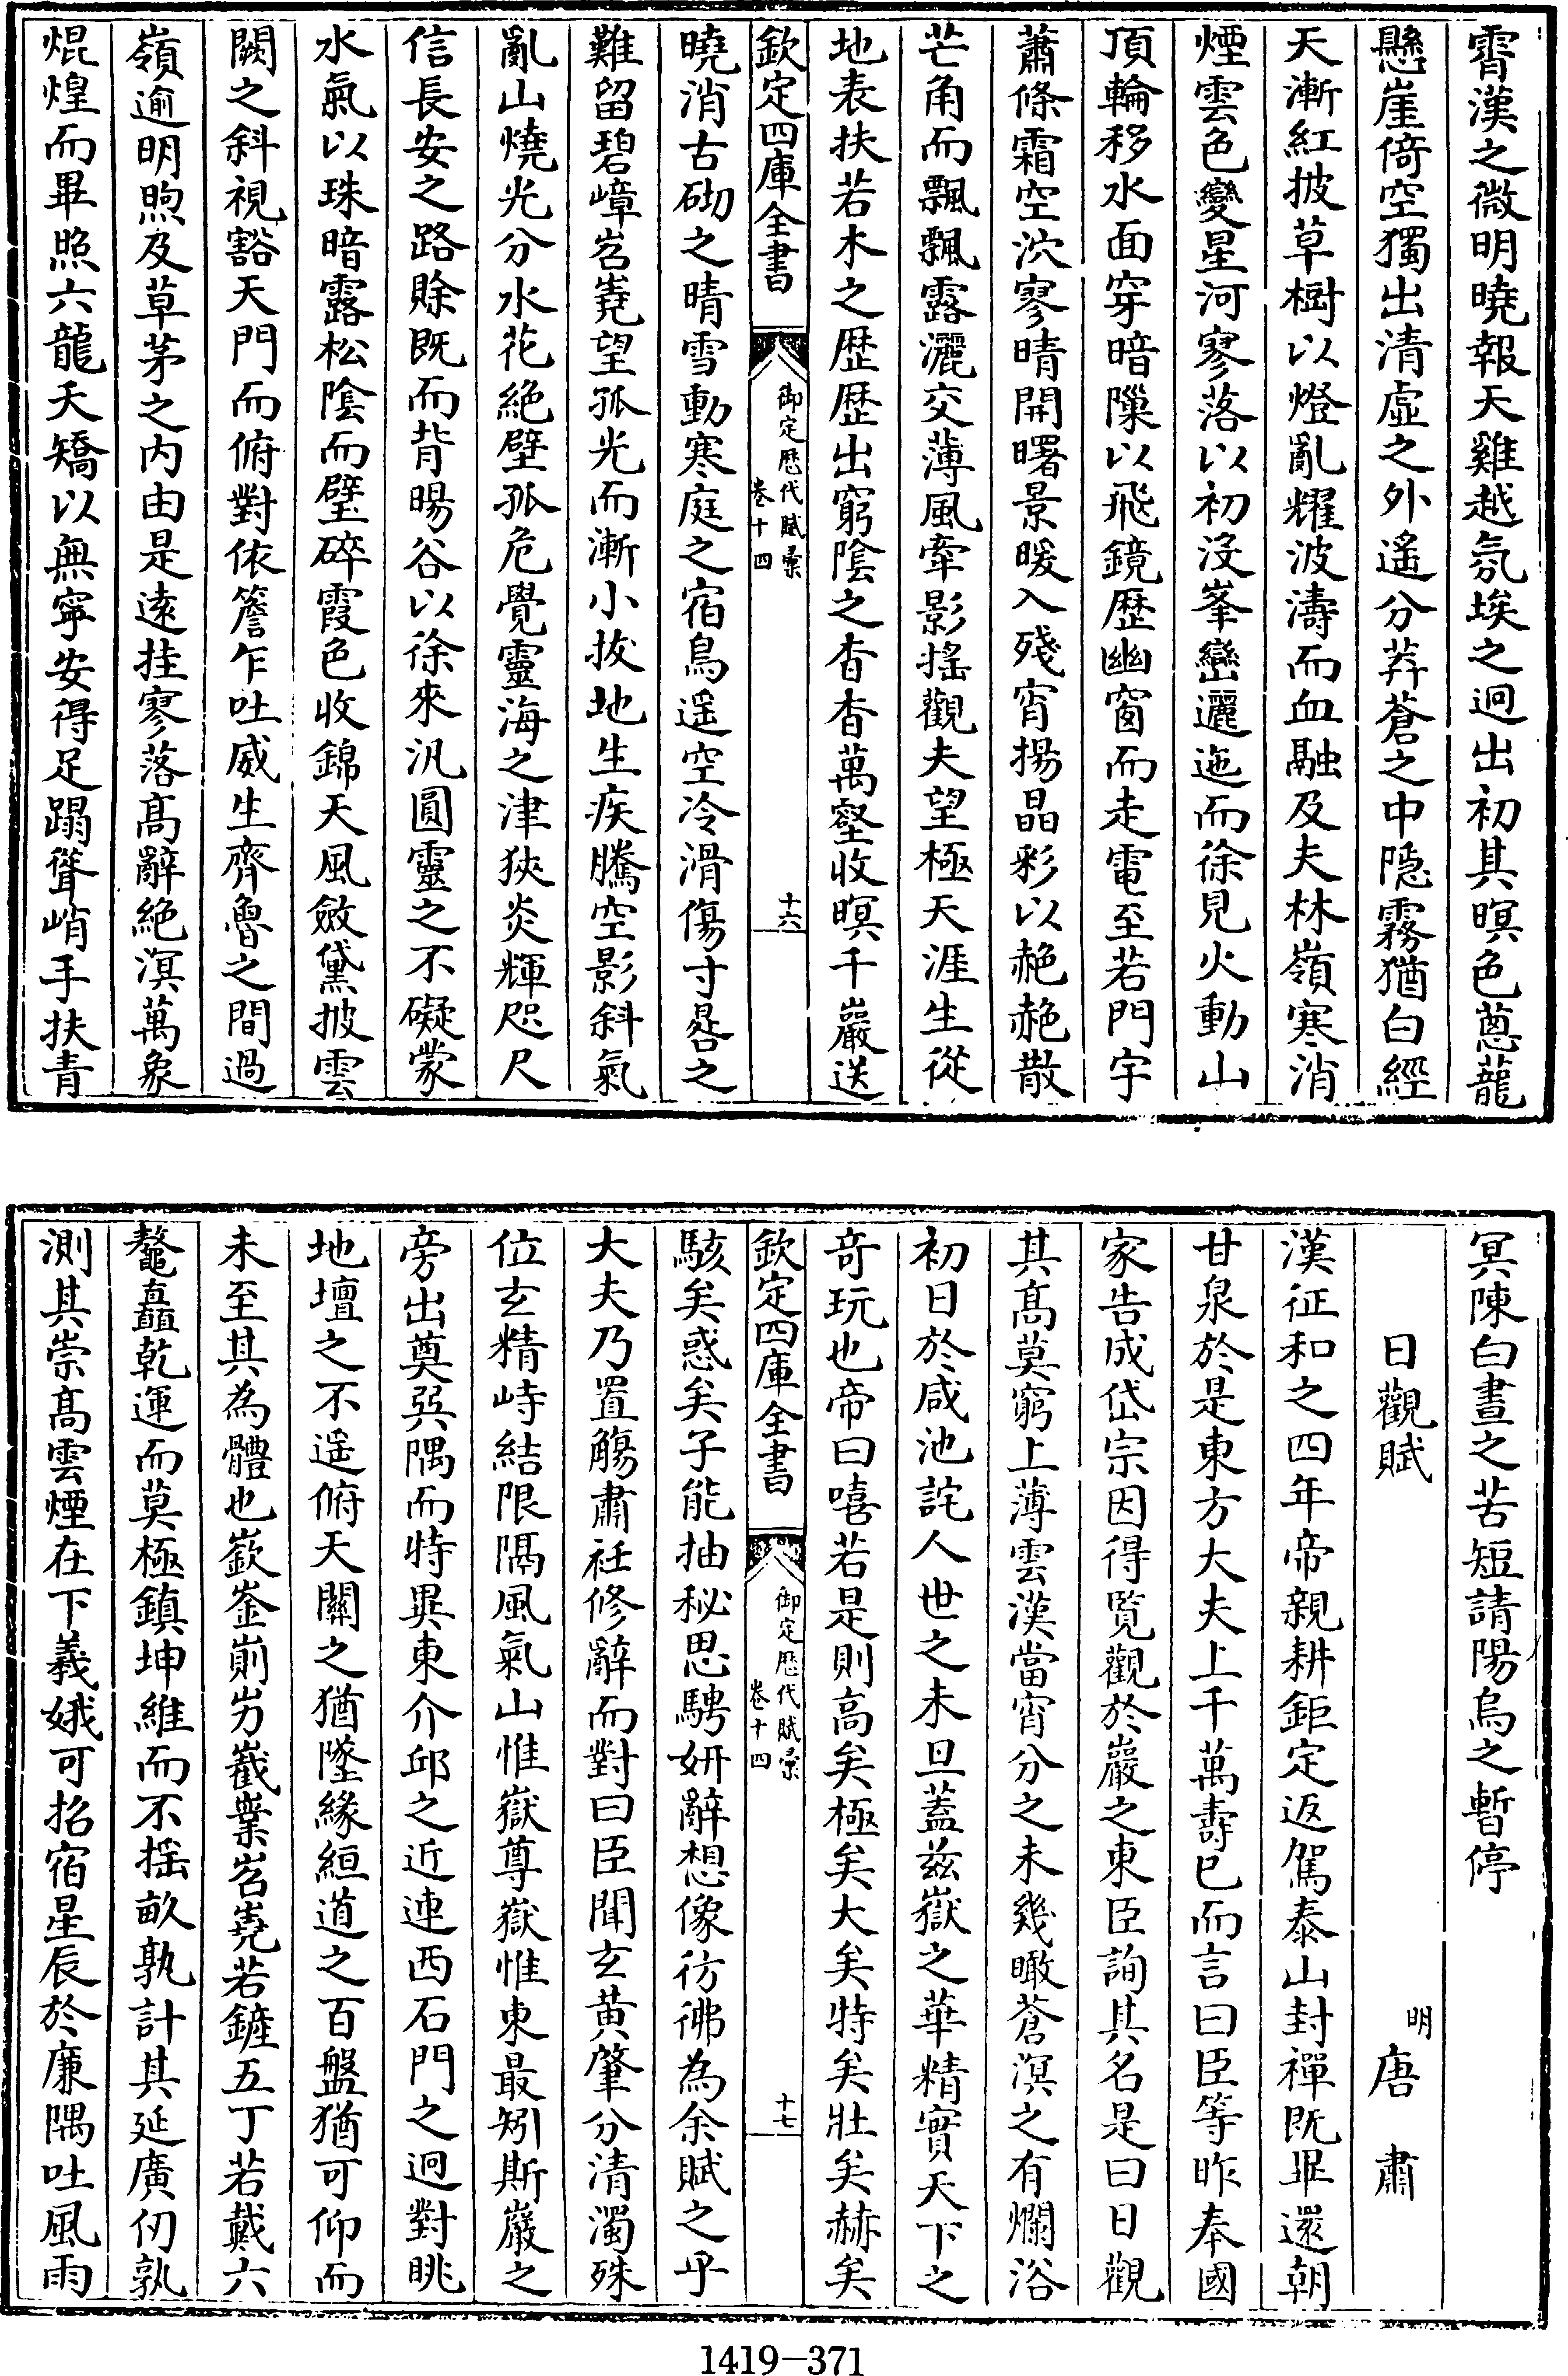 霄漢之微明曉報天雞越氛埃之迥出初其暝色蔥蘢
懸崖倚空獨出清虛之外遙分莽蒼之中隠霧猶白經
天漸紅披草樹以燈亂耀波濤而血融及夫林嶺寒消
煙雲色變星河寥落以初沒峯巒邐迤而徐見火動山
頂輪移水面穿暗隟以飛鏡歴幽窗而走電至若門宇
蕭條霜空泬寥晴開曙景暖入殘宵揚晶彩以赩赩散
芒角而飄飄露灑交薄風牽影揺觀夫望極天涯生從
地表扶若木之歴歴出窮陰之杳杳萬壑收暝千巖送
欽定四庫全書
御定歴代賦彙
卷十四
十六
曉消古砌之晴雪動寒庭之宿鳥遥空冷滑傷寸晷之
難留碧嶂岧嶤望孤光而漸小拔地生疾騰空影斜氣
亂山燒光分水花絶壁孤危覺靈海之津狹炎輝咫尺
信長安之路賒既而背暘谷以徐來汎圓靈之不礙蒙
水氣以珠暗露松陰而璧碎霞色收錦天風斂黛披雲
闕之斜視豁天門而俯對依簷乍吐威生齊魯之間過
嶺逾明煦及草茅之内由是逺挂寥落髙辭絶溟萬象
焜煌而畢照六龍夭矯以無寧安得足蹋聳峭手扶青
冥陳白晝之苦短請陽烏之暫停
日觀賦
明
唐肅
漢征和之四年帝親耕鉅定返駕泰山封禪既畢還朝
甘泉於是東方大夫上千萬壽已而言曰臣等昨奉國
家告成岱宗因得覧觀於巖之東臣詢其名是曰日觀
其髙莫窮上薄雲漢當宵分之未幾瞰蒼溟之有爛浴
初日於咸池詫人世之未旦蓋兹嶽之華精實天下之
竒玩也帝曰嘻若是則高矣極矣大矣特矣壯矣赫矣
欽定四庫全書
御定歴代賦彙
卷十四
十七
駭矣惑矣子能抽秘思騁妍辭想像彷彿為余賦之乎
大夫乃置觴肅衽修辭而對曰臣聞玄黄肇分清濁殊
位玄精峙結限隔風氣山惟嶽尊嶽惟東最矧斯巖之
旁出奠巽隅而特異東介邱之近連西石門之迥對眺
地壇之不遥俯天關之猶墜緣絙道之百盤猶可仰而
未至其為體也嶔崟崱屴嶻嶪岧嶤若鏟五丁若戴六
鼇矗乾運而莫極鎮坤維而不揺畝孰計其延廣仞孰
測其崇髙雲煙在下羲娥可招宿星辰於廉隅吐風雨
1419-371